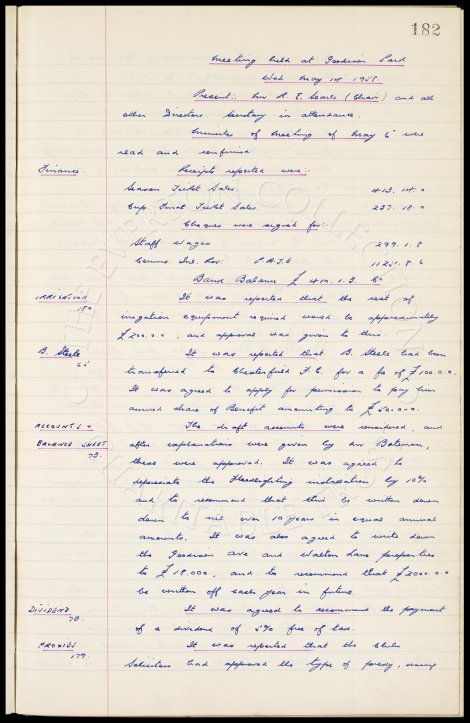 182
Meeting held at Goodison Park
Wed May 14th 1958
Present:- Mr R. E. Searle (Chair) and all
other Directors Secretary in attendance
Minutes of Meeting of May 6th were
read and confirmed.
Finance. Receipts reported were:-
Season Ticket Sales. 413. 14. 0
Cup Final Ticket Sales. 237. 18. 0
Cheques were signed for:-
Staff Wages 299. 1. 8
Comms. Inl. Rev. P.A.Y.E 1125. 8. 6
Bank Balance £ 1. 3.
IRRIGATION It was reported that the rest of
180 irrigation equipment required would be approximately
£200.0.0, and approval was given to this.
B. Steele It was reported that B. Steele had been
transferred to Chesterfield F.C. for a fee of £100.0.0.
It was agreed to apply for permission to pay him
accrued share of Benefit amounting to £50.0.0.
ACCOUNTS & The draft accounts were considered, and
BALANCE SHEET after explanations were given by Mr Bateman,
73. these were approved. It was agreed to
depreciate the Floodlighting installation by 10%
and to recommend that this be written down
down to nil over 10 years in equal annual
amounts. It was also agreed to write down
the Goodison Ave and Walton Lane properties
to £18,000, and to recommend that £2000.0.0
be written off each year in future.
DIVIDEND It was agreed to recommend the payment
78. of a dividend of 5% free of tax.
PROXIES It was reported that the Clubs
179. Solicitors had approved the type of proxy,
THE EVERTON COLLECTION
CHARITABLE TRUST